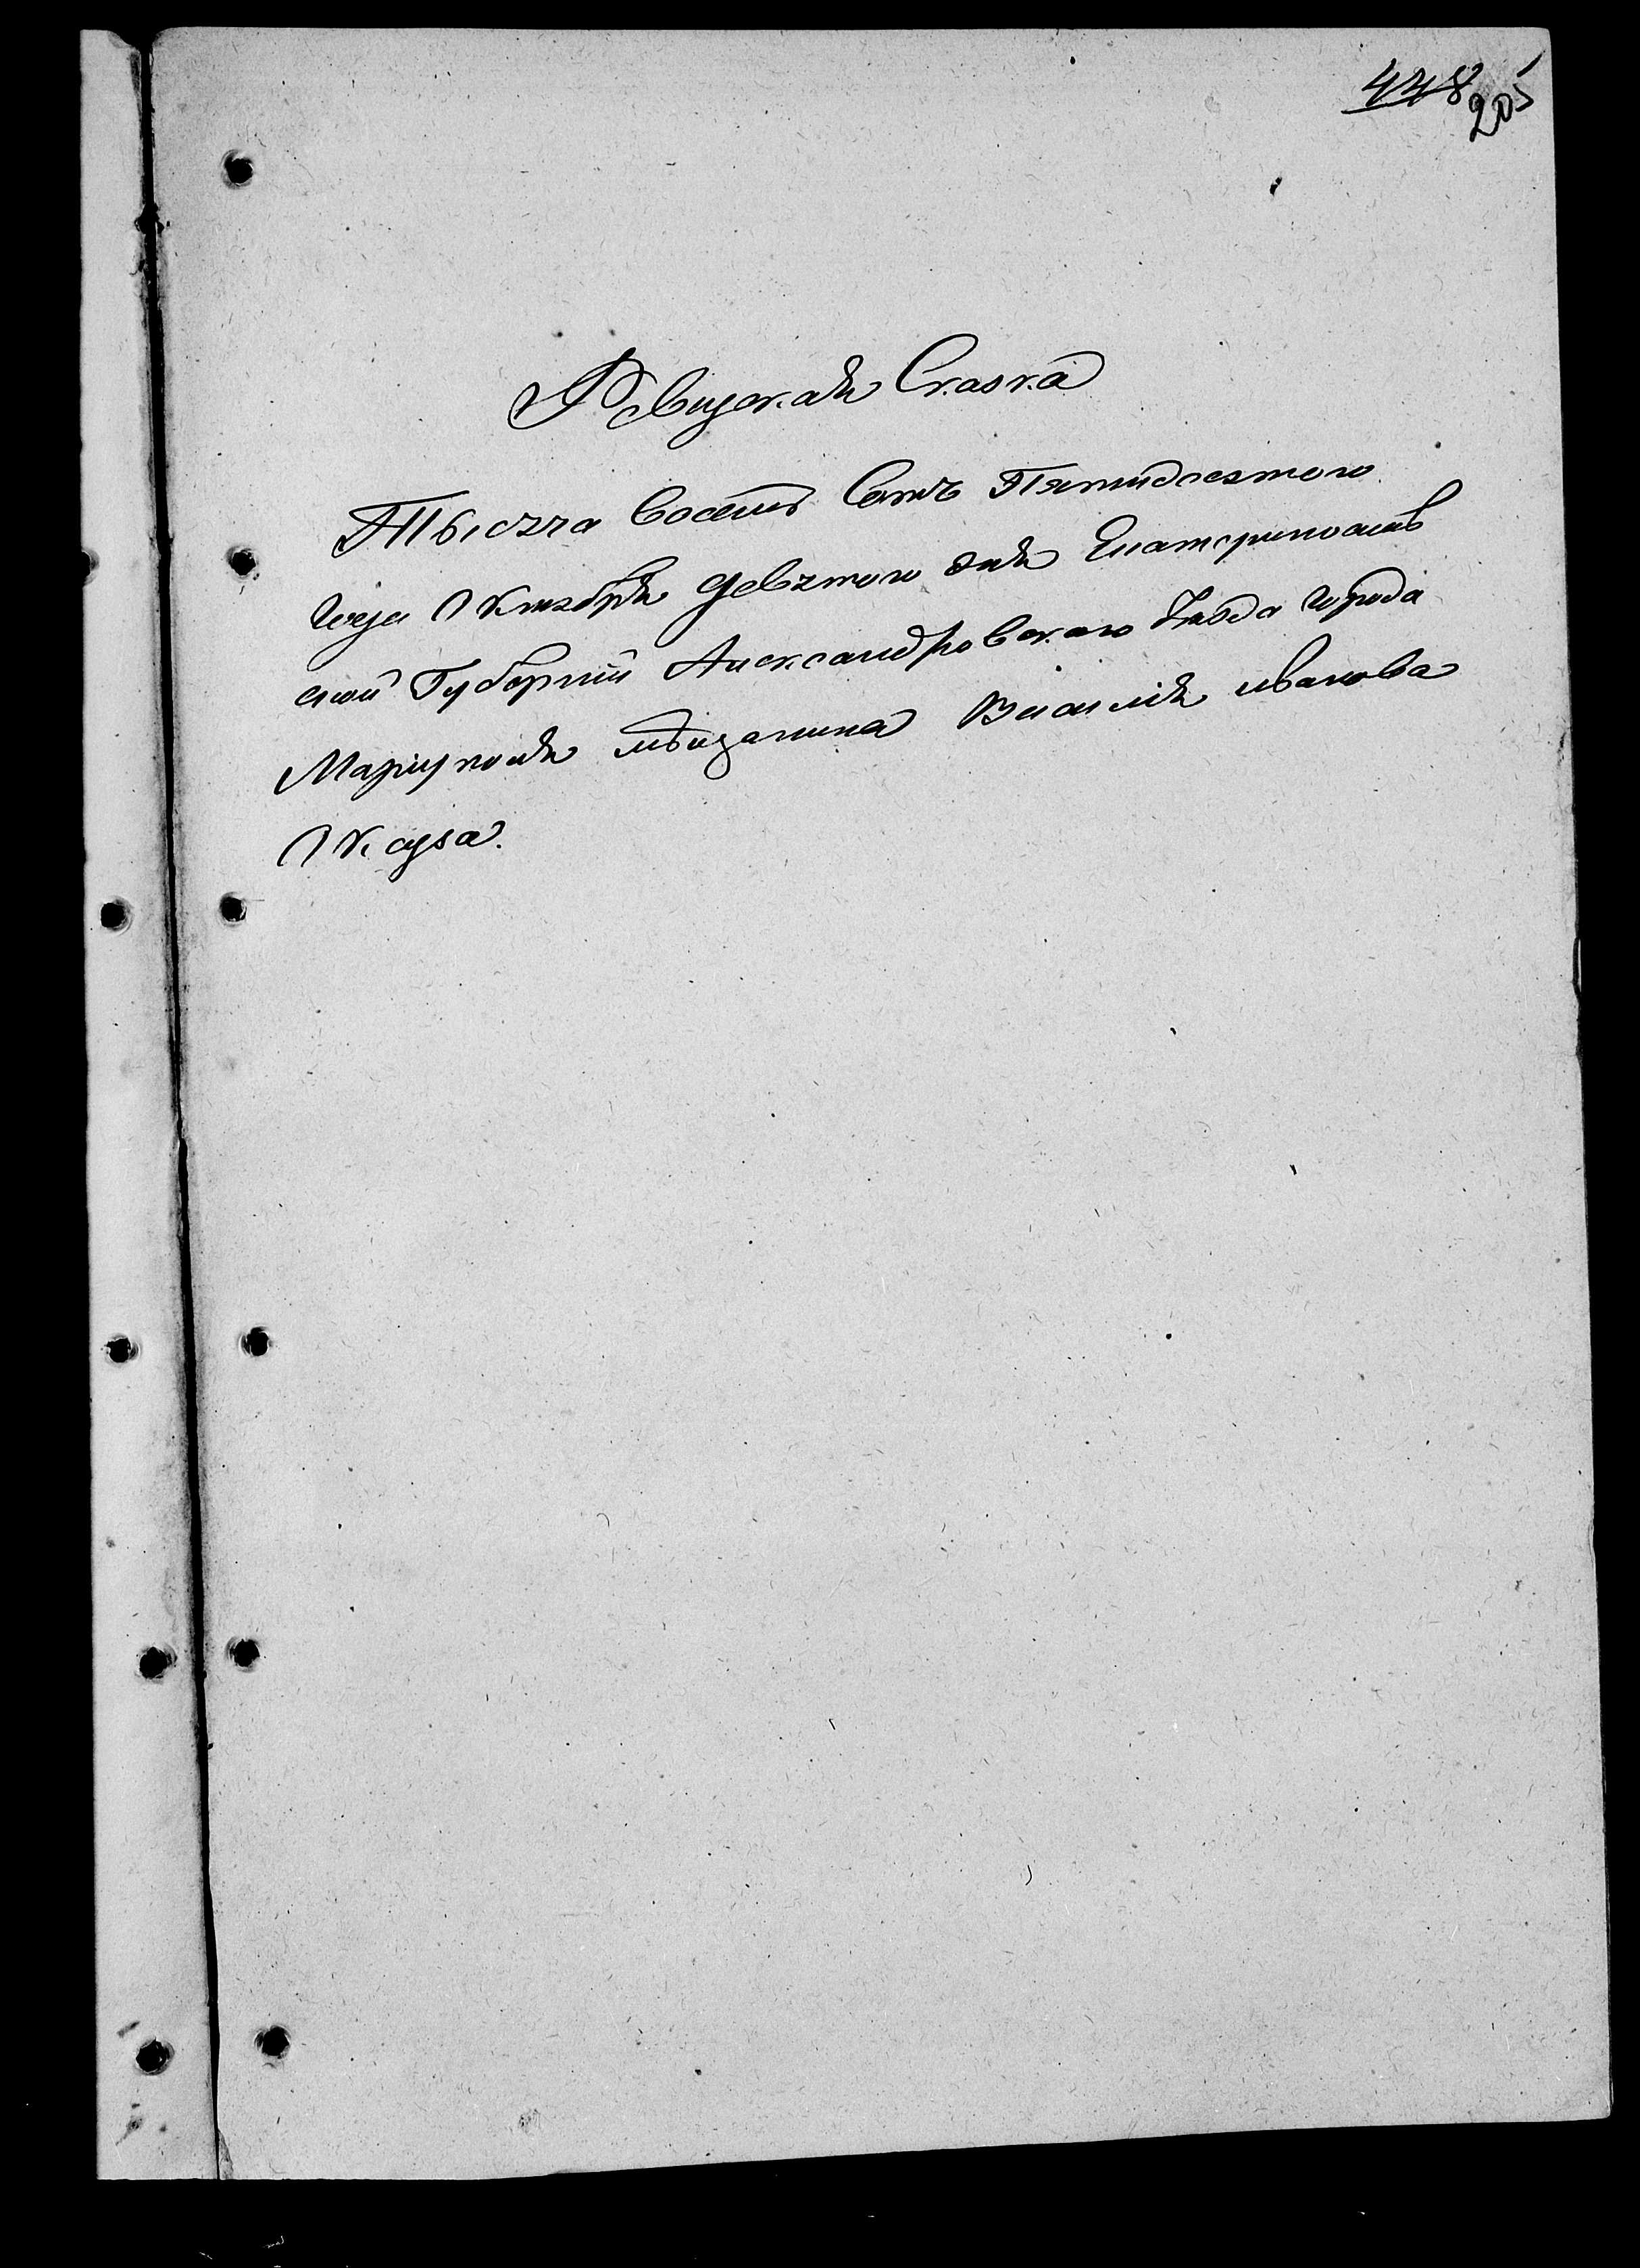 448
205
Ревизская Сказка
Тысяча восемь Сотъ Пятидесятого
года Октября девятого дня Екатеринослав
ской Губерніи Александровского Уѣзда города
Маріуполя мѣщанина Василія иванова